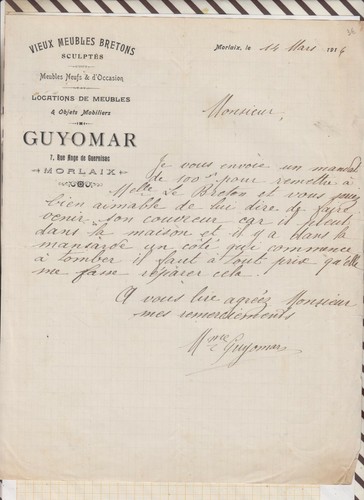 VIEUX MEUBLES BRETONS
SCULPTÉS
Meubles Neufs & d'Occasion
LOCATIONS DE MEUBLES
& Objets Mobiliers
GUYOMAR
7, Rue Hope de Guernisac
MORLAIX
Morlaix, le 14 Mars
Monsieur,
Je vous envoie un mandat
de 100 pour remettre à
Melle Le Breton et vous
bien aimable de lui dire de faire
venir son couvreur car il pleut
dans la maison et il y a dans la
mansarde un coté qui commence
à tomber il faut à tout prix qu'elle
me fasse réparer cela.
A vous lire agréez Monsieur
mes remerciements
Mme Guyomar